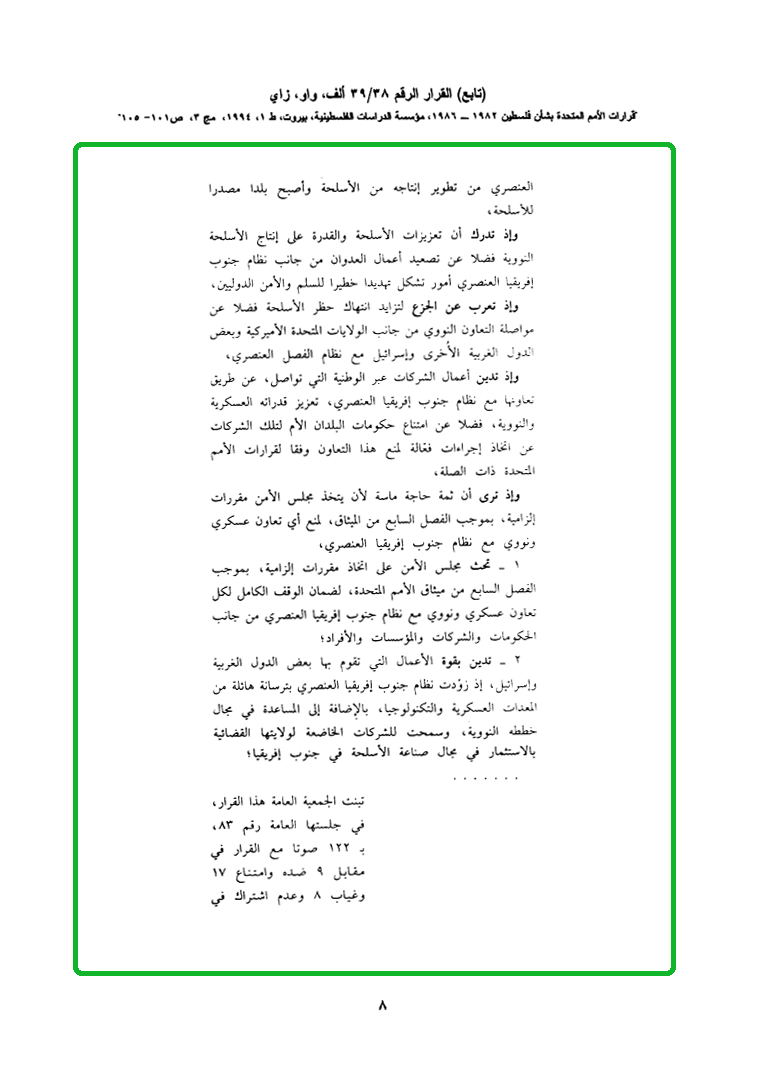 (تابع) القرار الرقم ٣٩/٣٨ ألف، واو، زاي
"قرارات الأمم المتحدة بشأن فلسطين ١٩٨٢ ــ ١٩٨٦، مؤسسة الدراسات الفلسطينية، بيروت، ط ١، ١٩٩٤، مج ٣، ص١٠١- ١٠٥"
العنصري من تطوير إنتاجه من الأسلحة وأصبح بلدا مصدرا
للأسلحة،
وإذ تدرك أن تعزيزات الأسلحة والقدرة على إنتاج الأسلحة
النووية فضلا عن تصعيد أعمال العدوان من جانب نظام جنوب
إفريقيا العنصري أمور تشكل تهديدا خطيرا للسلم والأمن الدوليين،
وإذ تعرب عن الجزع لتزايد انتهاك حظر الأسلحة فضلا عن
مواصلة التعاون النووي من جانب الولايات المتحدة الأميركية وبعض
الدول الغربية الأخرى وإسرائيل مع نظام الفصل العنصري،
وإذ تدين أعمال الشركات عبر الوطنية التي تواصل، عن طريق
تعاونها مع نظام جنوب إفريقيا العنصري، تعزيز قدراته العسكرية
والنووية، فضلا عن امتناع حكومات البلدان الأم لتلك الشركات
عن اتخاذ إجراءات فعّالة لمنع هذا التعاون وفقا لقرارات الأمم
المتحدة ذات الصلة،
وإذ ترى أن ثمة حاجة ماسة لأن يتخذ مجلس الأمن مقررات
إلزامية، بموجب الفصل السابع من الميثاق، لمنع أي تعاون عسكري
ونووي مع نظام جنوب إفريقيا العنصري،
١ ـ تحث مجلس الأمن على اتخاذ مقررات إلزامية، بموجب
الفصل السابع من ميثاق الأمم المتحدة، لضمان الوقف الكامل لكل
تعاون عسكري ونووي مع نظام جنوب إفريقيا العنصري من جانب
الحكومات والشركات والمؤسسات والأفراد؛
٢ ـ تدين بقوة الأعمال التي تقوم بها بعض الدول الغربية
وإسرائيل، إذ زوّدت نظام جنوب إفريقيا العنصري بترسانة هائلة من
المعدات العسكرية والتكنولوجيا، بالإضافة إلى المساعدة في مجال
خططه النووية، وسمحت للشركات الخاضعة لولايتها القضائية
بالاستثمار في مجال صناعة الأسلحة في جنوب إفريقيا؛
. . . . . . .
تبنت الجمعية العامة هذا القرار،
في جلستها العامة رقم ٨٣،
بـ ١٢٢ صوتا مع القرار في
مقابل ٩ ضده وامتناع ١٧
وغياب ٨ وعدم اشتراك في
٨